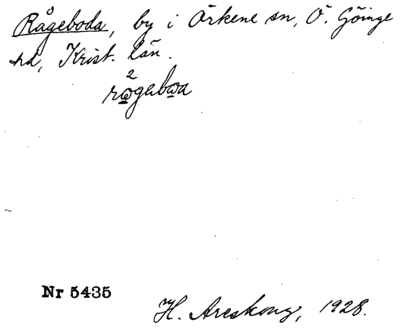 Rågeboda, by i Örkene sn, Ö. Göinge
hd, Krist. län.
2
rωgəbωa
Nr 5435
H. Areskoug, 1928.